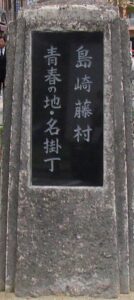 島崎藤村
青春の地・名掛丁